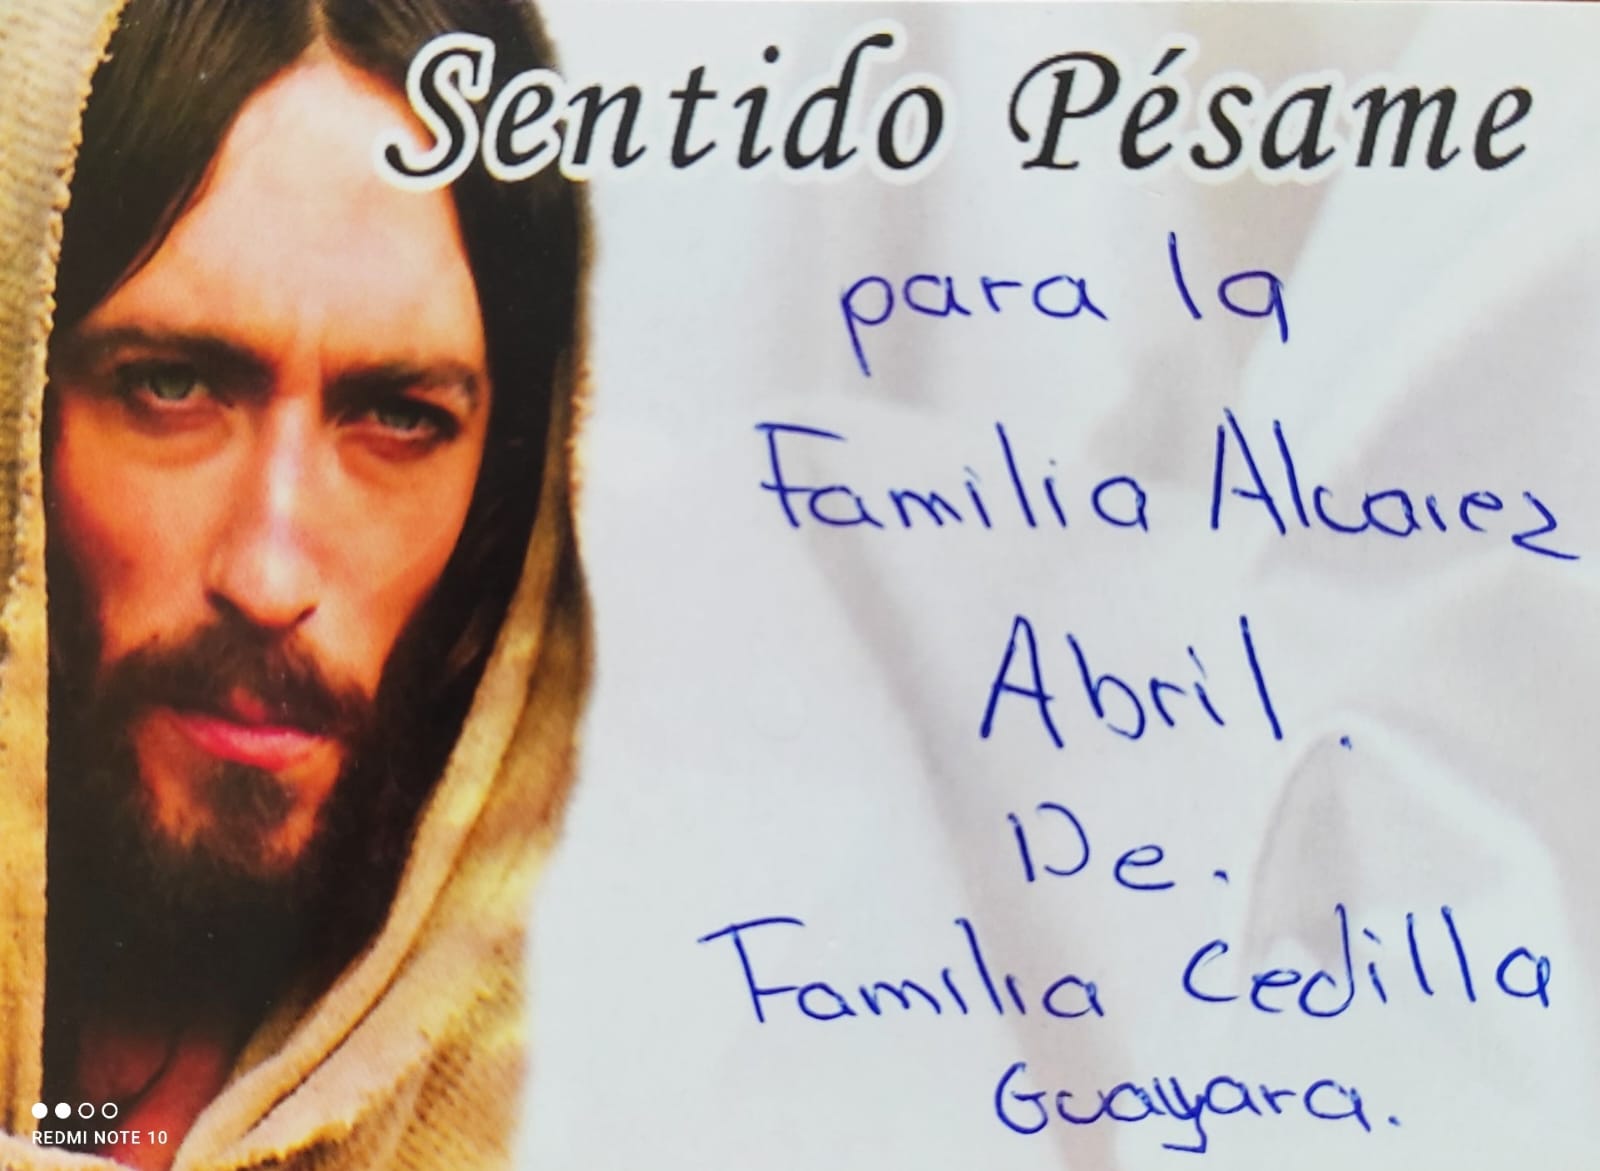 Sentido Pésame
para la
Familia Alvarez
Abril.
De.
Familia Cedilla
Guayara.
REDMI NOTE 10